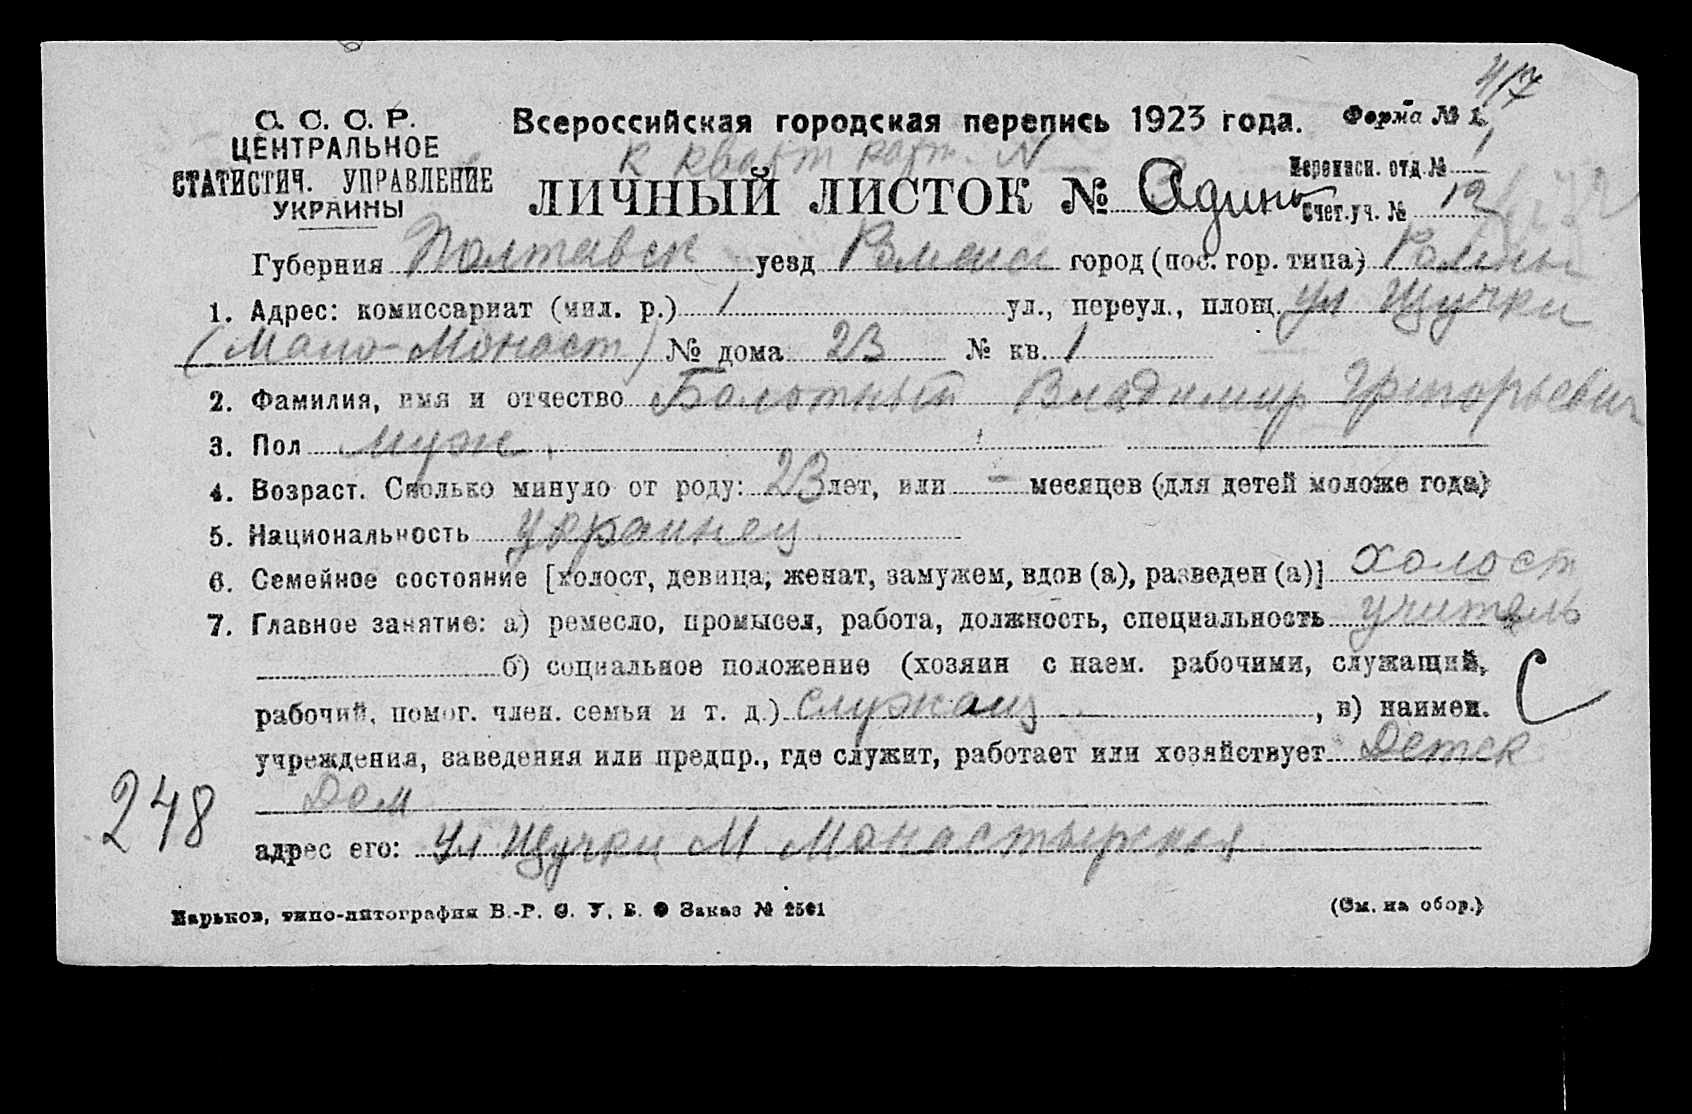 4/7
С. С. С. Р.
ЦЕНТРАЛЬНОЕ
СТАТИСТИЧ. УПРАВЛЕНИЕ
УКРАИНЫ
Всероссийская городская перепись 1923 года.
Форма № 1.
к кварт карт. N
Переписи. отд. № 1
ЛИЧНЫЙ ЛИСТОК № Адинъ
Счет. уч. № 12
Губерния Полтавск уезд Роменск город (пос. гор. типа) Ромны
1. Адрес: комиссариат (мил. р.) 1 ул., переул., площ. ул Щучки
(Мало-Монаст) № дома 23 № кв. 1
2. Фамилия, имя и отчество Болотный Владимир Григорьевич
3. Пол муж.
4. Возраст. Сколько минуло от роду: 23 лет, или - месяцев (для детей моложе года)
5. Национальность украинец.
6. Семейное состояние [холост, девица, женат, замужем, вдов (а), разведен (а)] холост
7. Главное занятие: а) ремесло, промысел, работа, должность, специальность учитель
б) социальное положение (хозяин с наем. рабочими, служащий,
рабочий, помог. член. семьи и т. д.) служащ , в) наимен.
С
учреждения, заведения или предпр., где служит, работает или хозяйствует Детск
Дом
248
адрес его: ул Щучки М Монастырская
Харьков, типо-литография В.-Р. С. У. В. Заказ № 2501
(См. на обор.)